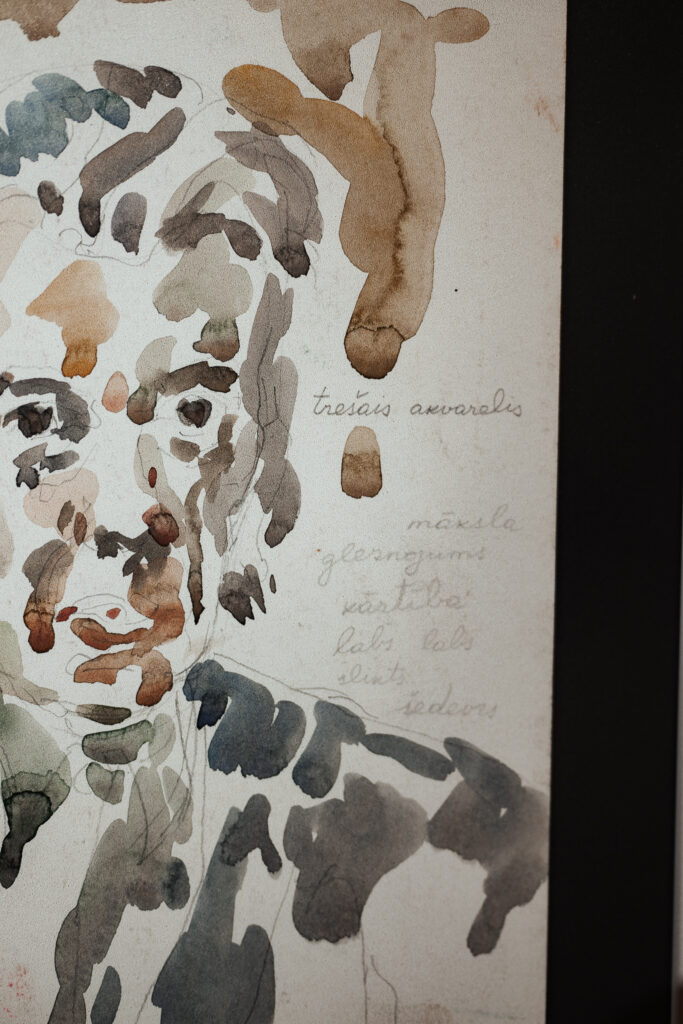 trešais akvarelis
māksla
gleznojums
kārtība
labs labs
slikts
šedevrs